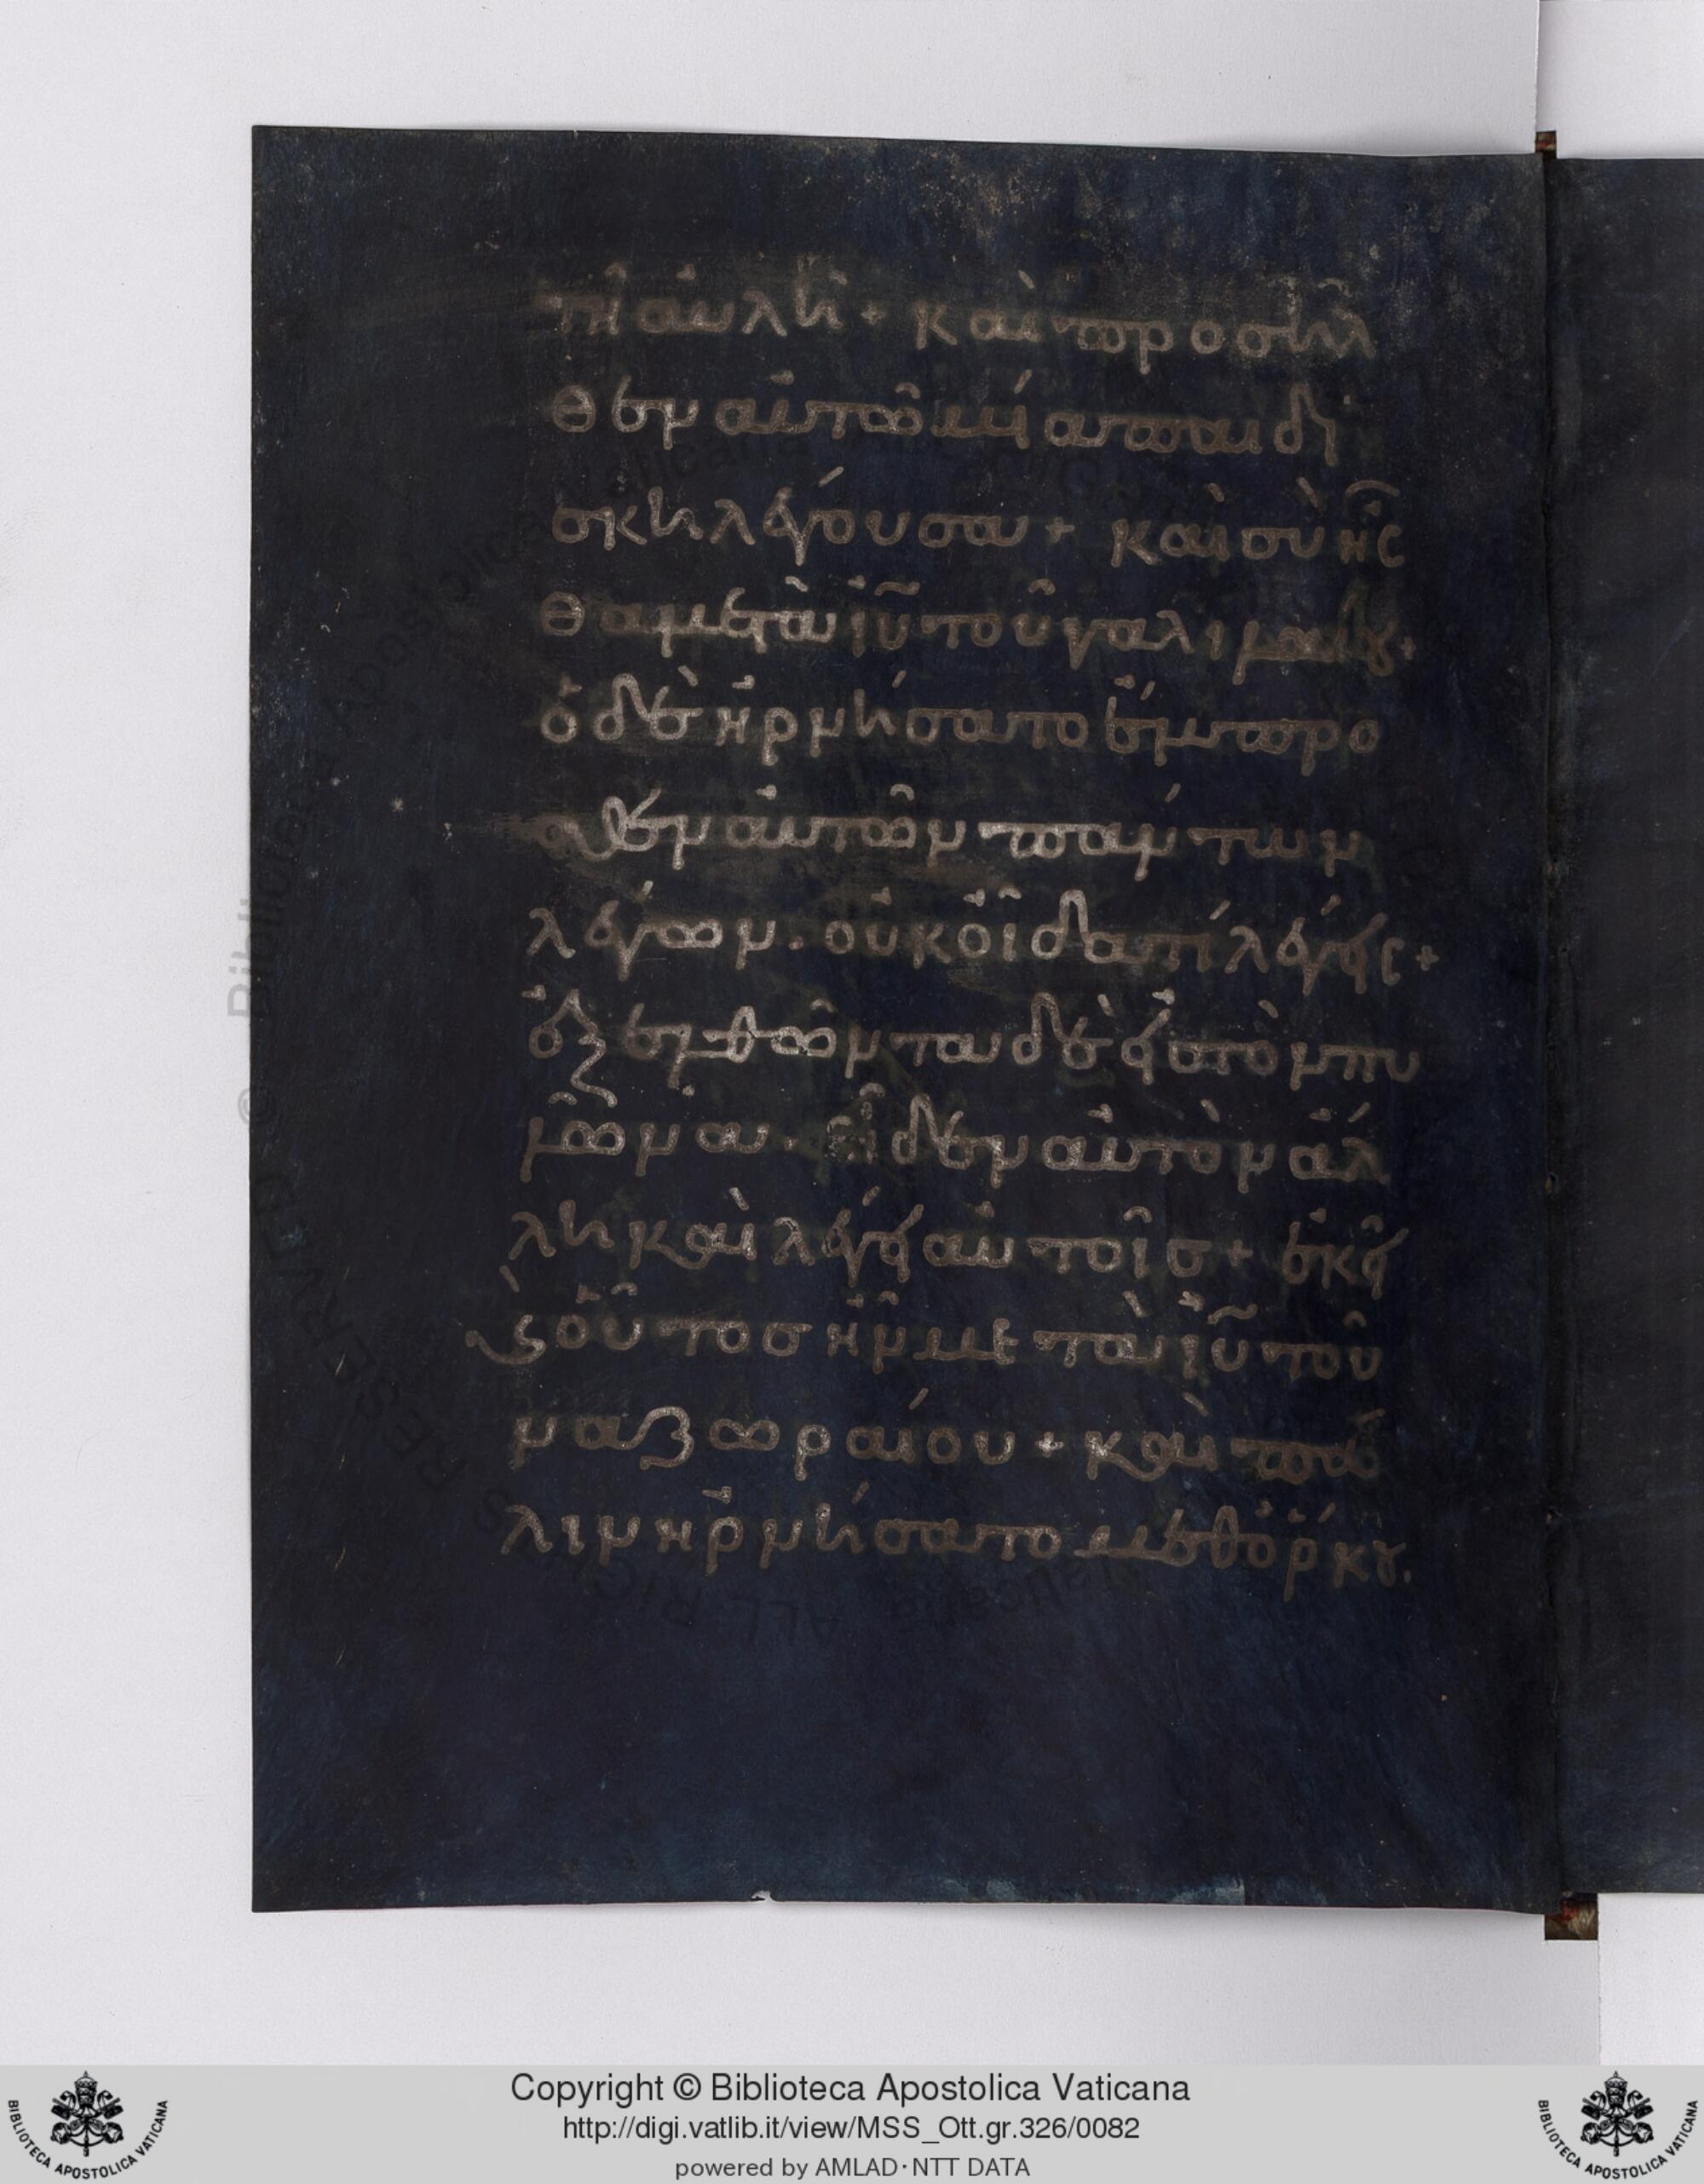 τῆ αὐλῆ + καὶ προσῆλ
θεν αὐτῶ μία παιδί
σκη λέγουσα + καὶ σὺ ἦς
θα μετὰ ἰῦ τοῦ γαλιλαίου +
ὁ δὲ ἠρνήσατο ἔμπρο
σθεν αὐτῶν πάντων
λέγων · οὐκ οἶδα τί λέγεις +
ἐξελθόντα δὲ αὐτὸν εἰς τὸν πυ
λῶνα · εἶδεν αὐτὸν ἄλ
λη καὶ λέγει αὐτοῖς + ἐκεῖ
καὶ οὗτος ἦν μετὰ ἰῦ τοῦ
ναζωραίου + καὶ πά
λιν ἠρνήσατο μεθ ὅρκου ·
Copyright © Biblioteca Apostolica Vaticana
http://digi.vatlib.it/view/MSS_Ott.gr.326/0082
powered by AMLAD·NTT DATA
BIBLIOTECA APOSTOLICA VATICANA
BIBLIOTECA APOSTOLICA VATICANA